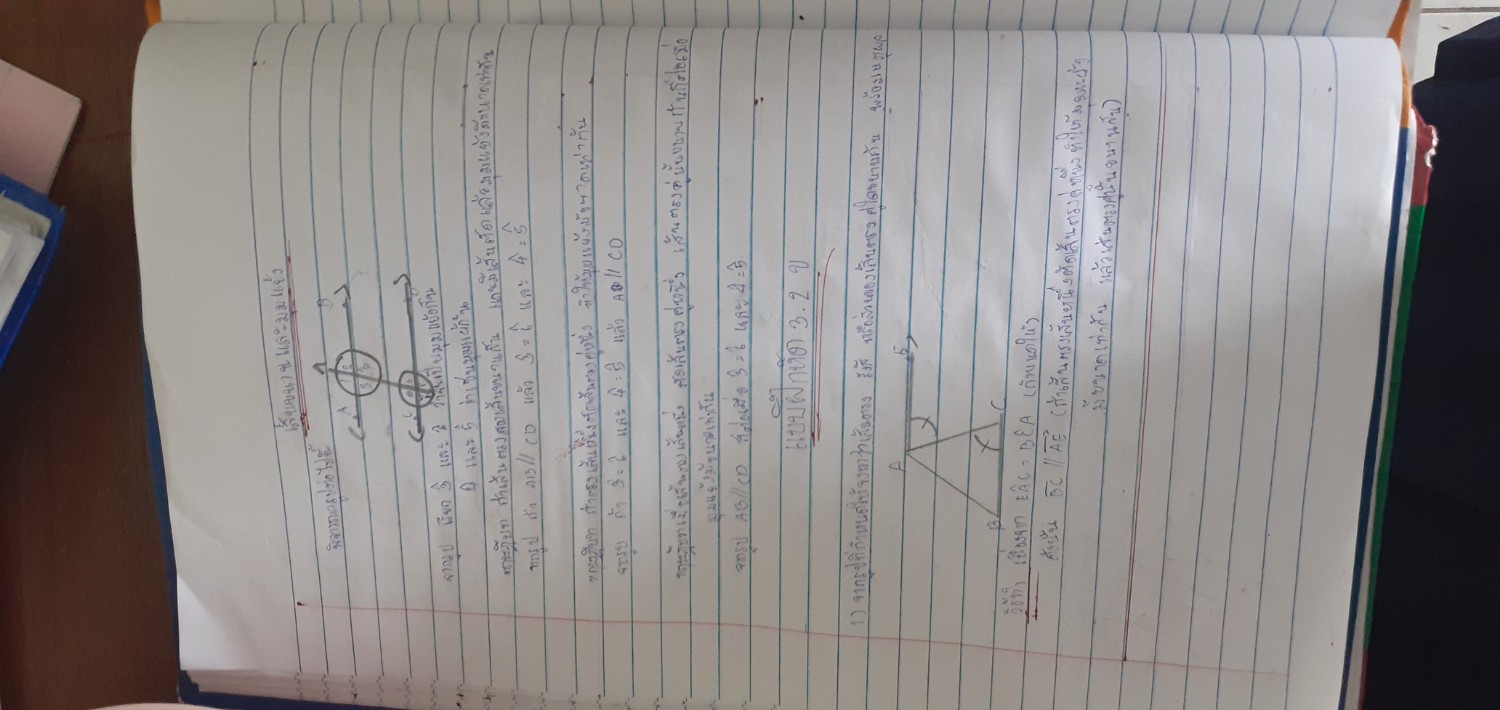 เส้นขนานและมุมแย้ง
พิจารณารูปต่อไปนี้
A B
C D
จากรูป เรียก 3̂ และ 6̂ ว่าเป็นมุมแย้งกัน
4̂ และ 5̂ ว่าเป็นมุมแย้งกัน
ทฤษฎีบท ถ้าเส้นตรงสองเส้นขนานกัน และมีเส้นตัด แล้วมุมแย้งมีขนาดเท่ากัน
จากรูป ถ้า AB // CD แล้ว 3̂ = 6̂ และ 4̂ = 5̂
ทฤษฎีบท ถ้าเส้นตรงเส้นหนึ่งตัดเส้นตรงคู่หนึ่ง ทำให้มุมแย้งมีขนาดเท่ากัน
จากรูป ถ้า 3̂ = 6̂ และ 4̂ = 5̂ แล้ว AB // CD
ทฤษฎีบท เมื่อเส้นตรงเส้นหนึ่ง ตัดเส้นตรงคู่หนึ่ง เส้นตรงคู่นั้นขนานกันก็ต่อเมื่อ
มุมแย้งมีขนาดเท่ากัน
จากรูป AB // CD ก็ต่อเมื่อ 3̂ = 6̂ และ 4̂ = 5̂
แบบฝึกหัด 3.2 ข
1) จากรูปที่กำหนดให้ จงหาว่าเส้นตรง รังสี หรือส่วนของเส้นตรงคู่ใดขนานกัน พร้อมเหตุผล
A E
B C
วิธีทำ เนื่องจาก EÂC = BĈA (กำหนดให้)
ดังนั้น BC // AE (ถ้าเส้นตรงเส้นหนึ่งตัดเส้นตรงคู่หนึ่ง ทำให้มุมแย้ง
มีขนาดเท่ากัน แล้วเส้นตรงคู่นั้นขนานกัน)